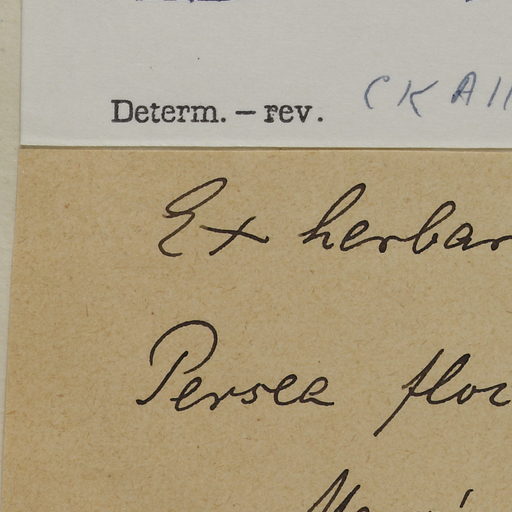 Determ. – rev. CKAll
Ex herbar
Persea floc